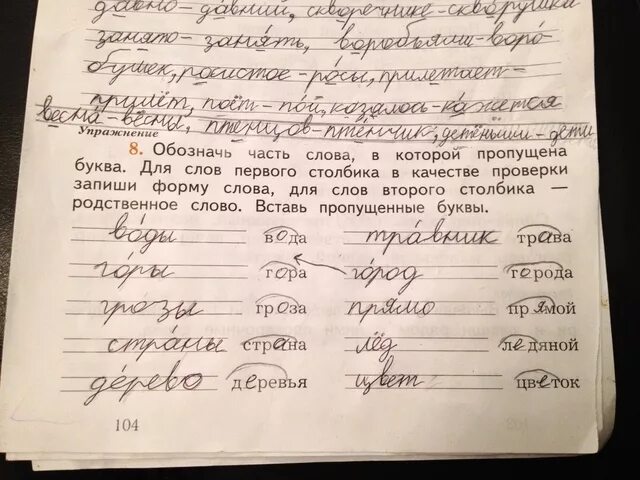 давно-давний, скворечнике-скворушка
занято-занять, воробьями-воро-
бушек, росистое-росы, прилетает-
прилёт, поёт-пой, казалось-кажется
весна-вёсны, птенцов-птенчик, детёныши-дети
Упражнение
8. Обозначь часть слова, в которой пропущена
буква. Для слов первого столбика в качестве проверки
запиши форму слова, для слов второго столбика —
родственное слово. Вставь пропущенные буквы.
во́ды вода тра́вник трава
го́ры гора го́род города
грозы гроза прямо прямой
стра́ны страна лёд ледяной
де́рево деревья цвет цветок
104